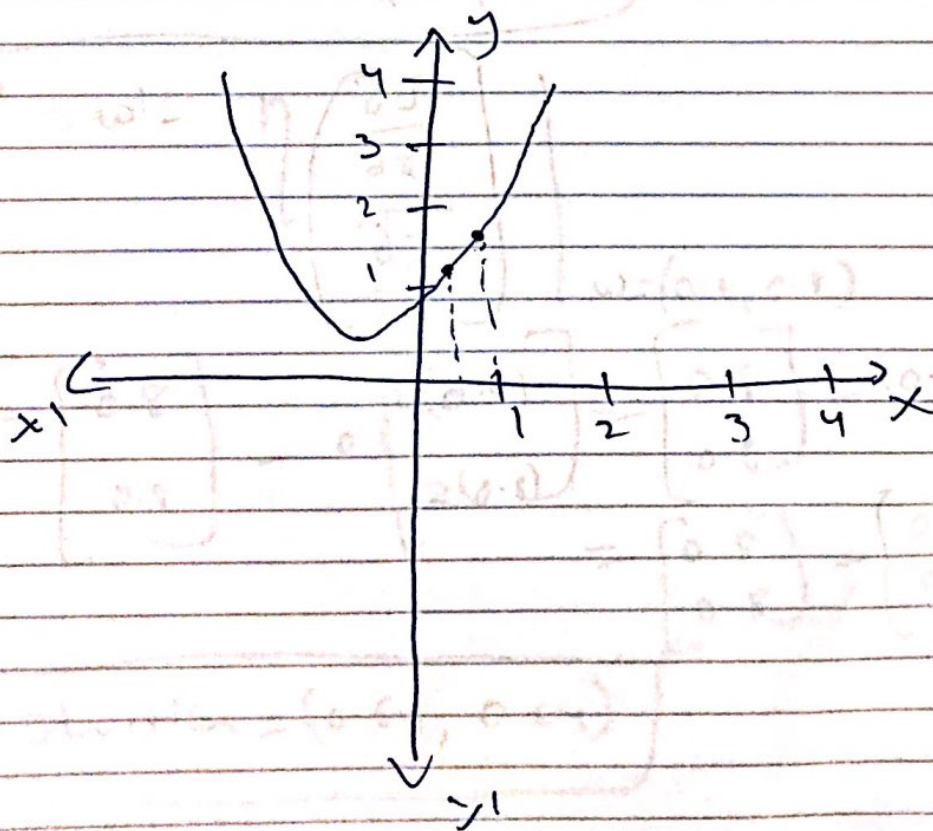 y
4
3
2
1
x' 1 2 3 4 x
y'